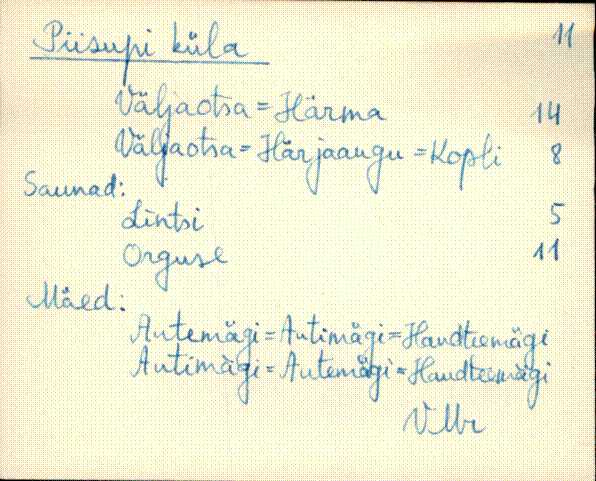 Piisupi küla 11
Väljaotsa = Härma 14
Väljaotsa = Härjaaugu = Kopli 8
Saunad:
Lintsi 5
Orguse 11
Mäed:
Autemägi = Autimägi = Haudteemägi
Autimägi = Autemägi = Haudteemägi
VMr